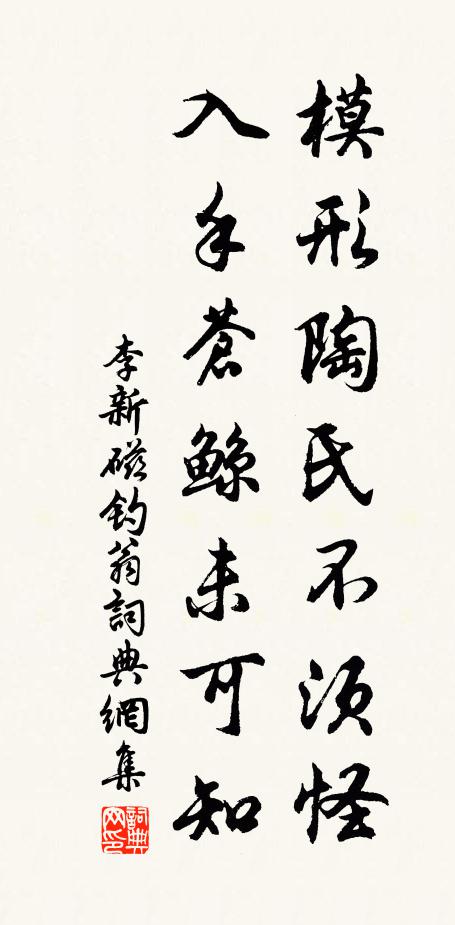 模形陶氏不須怪
入手蒼鯨未可知
李新磁鈞翁詞典網集
詞典
网印